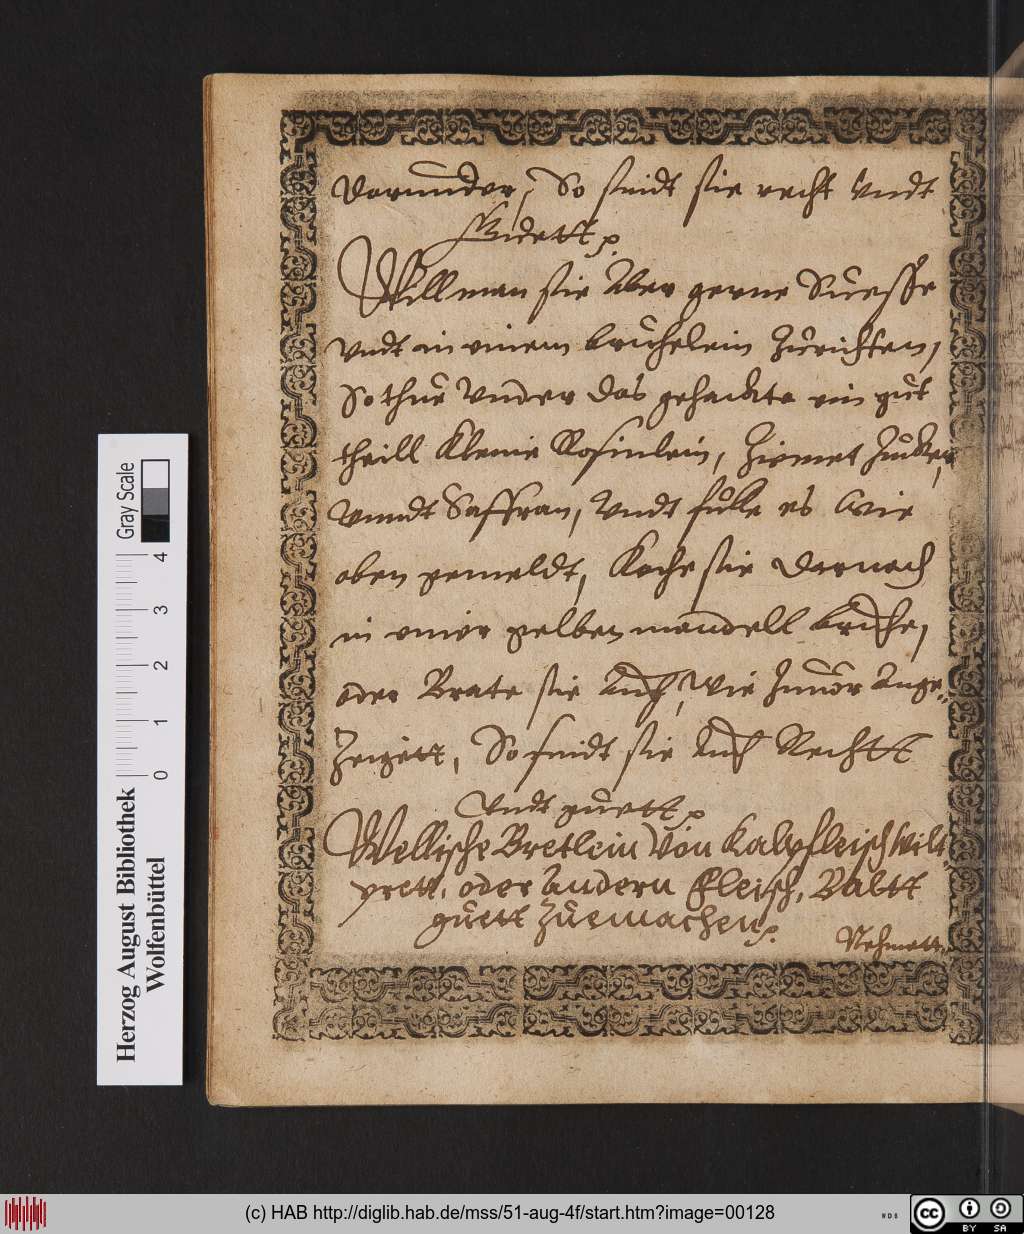 darunnder, So seindt sie recht Vndt
Guett.
Will man sie Aber gerne Suesse
Vndt in einem bruehelein Zurichten,
So thue Vnder das gehackte ein gut
theill Kleine Rosinlein, Zimmet Zucker,
Vnndt Saffran, Vndt fülle es Wie
oben gemeldt, Koche sie darnach
in einer gelben mandell brühe,
oder Brate sie Auch, Wie Zuuor Ange-
Zeigett, So seindt sie Auch Rechtt
Vndt guett.
Wellische Bretlein Von Kalpfleisch Wilt
prett, oder Andern Fleisch, Baltt
guett Zuemachen.
Nehmett
Gray Scale
0 1 2 3 4
Herzog August Bibliothek
Wolfenbüttel
(c) HAB http://diglib.hab.de/mss/51-aug-4f/start.htm?image=00128
WDB
cc BY SA